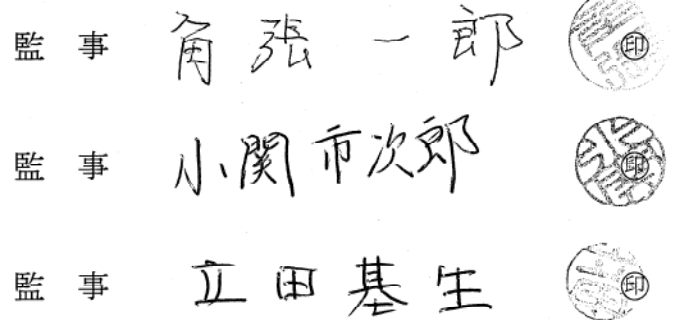 監 事 角 張 一 郎 ㊞
監 事 小 関 市 次 郎 ㊞
監 事 立 田 基 生 ㊞